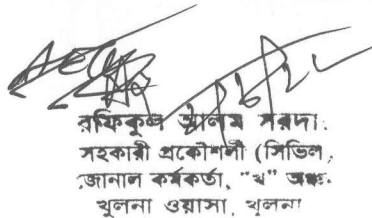 রফিকুল আলম সরদা:
সহকারী প্রকৌশলী (সিভিল,
জোনাল কর্মকর্তা, "খ" অঞ্চ:
খুলনা ওয়াসা, খুলনা